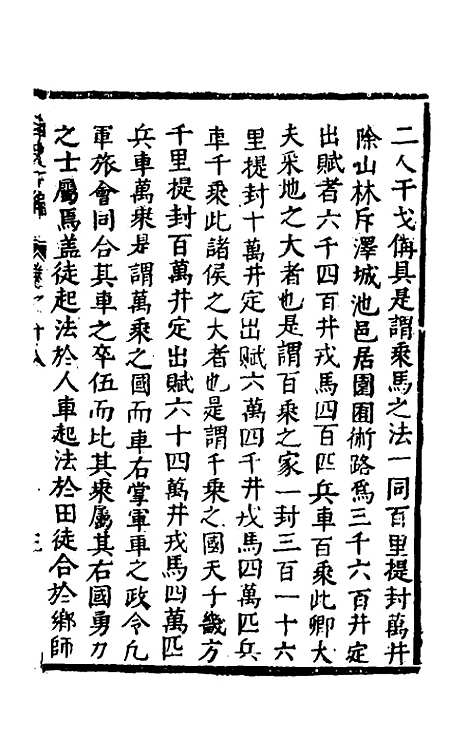 二人干戈備具是謂乘馬之法一同百里提封萬井
除山林斥澤城池邑居園囿術路爲三千六百井定
出賦者六千四百井戎馬四百匹兵車百乘此卿大
夫采地之大者也是謂百乘之家一封三百一十六
里提封十萬井定出賦六萬四千井戎馬四萬匹兵
車千乘此諸侯之大者也是謂千乘之國天子畿方
千里提封百萬井定出賦六十四萬井戎馬四萬匹
兵車萬乘是謂萬乘之國而車右掌軍車之政令凡
軍旅會同合其車之卒伍而比其乘屬其右國勇力
之士屬焉盖徒起法於人車起法於田徒合於鄉師